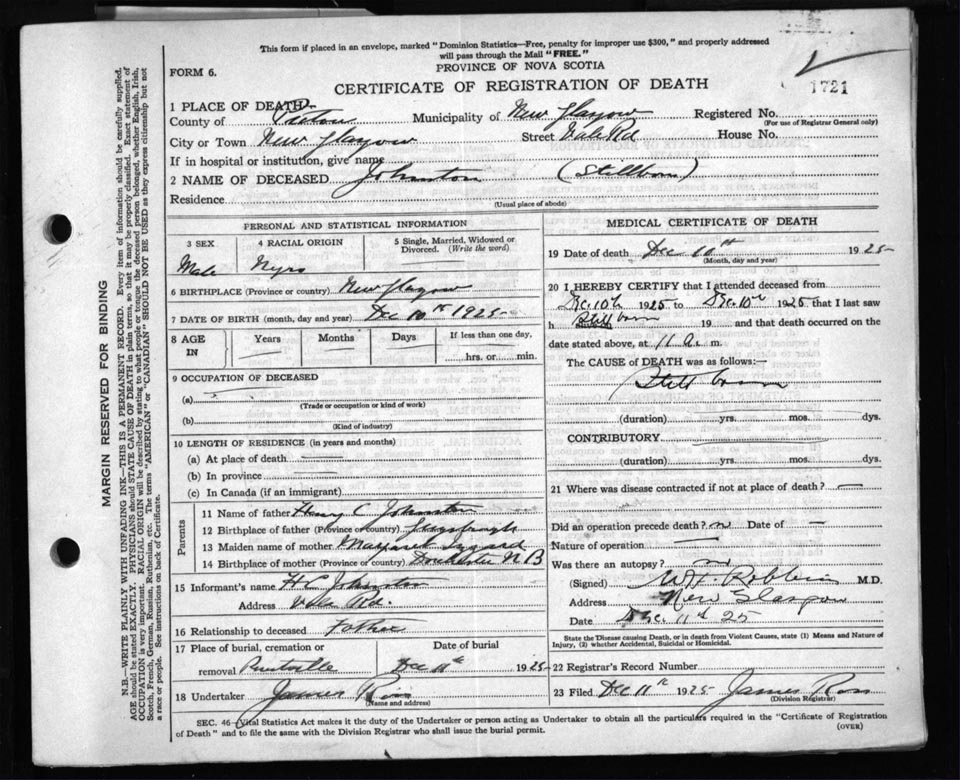 This form if placed in an envelope, marked "Dominion Statistics—Free, penalty for improper use $300," and properly addressed
will pass through the Mail "FREE."
PROVINCE OF NOVA SCOTIA
FORM 6.
CERTIFICATE OF REGISTRATION OF DEATH
1721
1 PLACE OF DEATH—
County of Pictou Municipality of New Glasgow Registered No.
(For use of Registrar General only)
City or Town New Glasgow Street Vale Rd House No.
If in hospital or institution, give name
2 NAME OF DECEASED Johnston (Stillborn)
Residence
(Usual place of abode)
PERSONAL AND STATISTICAL INFORMATION
3 SEX 4 RACIAL ORIGIN 5 Single, Married, Widowed or
Divorced. (Write the word)
Male
6 BIRTHPLACE (Province or country) New Glasgow
7 DATE OF BIRTH (month, day and year) Dec 10th 1925
8 AGE IN Years Months Days If less than one day,
hrs. or min.
9 OCCUPATION OF DECEASED
(a)
(Trade or occupation or kind of work)
(b)
(Kind of industry)
10 LENGTH OF RESIDENCE (in years and months)
(a) At place of death
(b) In province
(c) In Canada (if an immigrant)
Parents
11 Name of father Henry C Johnston
12 Birthplace of father (Province or country)
13 Maiden name of mother Margaret
14 Birthplace of mother (Province or country) Dorchester N B
15 Informant's name H C Johnston
Address Vale Rd.
16 Relationship to deceased Father
17 Place of burial, cremation or Date of burial
removal Dec 11th 1925
18 Undertaker James Ross
(Name and address)
MEDICAL CERTIFICATE OF DEATH
19 Date of death Dec 10th 1925
(Month, day and year)
20 I HEREBY CERTIFY that I attended deceased from
Dec. 10th 1925 to Dec. 10th 1925 that I last saw
h Still born 19 and that death occurred on the
date stated above, at 11 a. m.
The CAUSE of DEATH was as follows:—
Still born
(duration) yrs. mos. dys.
CONTRIBUTORY
(duration) yrs. mos. dys.
21 Where was disease contracted if not at place of death? —
Did an operation precede death? no Date of —
Nature of operation —
Was there an autopsy? no
(Signed) W.H. Robbins M.D.
Address New Glasgow
Date Dec. 11th 25
State the Disease causing Death, or in death from Violent Causes, state (1) Means and Nature of
Injury, (2) whether Accidental, Suicidal or Homicidal.
22 Registrar's Record Number
23 Filed Dec 11th 1925 James Ross
(Division Registrar)
SEC. 46—Vital Statistics Act makes it the duty of the Undertaker or person acting as Undertaker to obtain all the particulars required in the "Certificate of Registration
of Death" and to file the same with the Division Registrar who shall issue the burial permit.
(OVER)
MARGIN RESERVED FOR BINDING
N.B.—WRITE PLAINLY WITH UNFADING INK—THIS IS A PERMANENT RECORD. Every item of information should be carefully supplied.
AGE should be stated EXACTLY. PHYSICIANS should STATE CAUSE OF DEATH in plain terms, so that it may be properly classified. Exact statement of
OCCUPATION is very important. RACIAL ORIGIN will be described by stating to what people or tongue the deceased person belonged, whether English, Irish,
Scotch, French, German, Russian, Ruthenian, etc. The terms "AMERICAN" or "CANADIAN" SHOULD NOT BE USED as they express citizenship but not
a race or people. See instructions on back of Certificate.